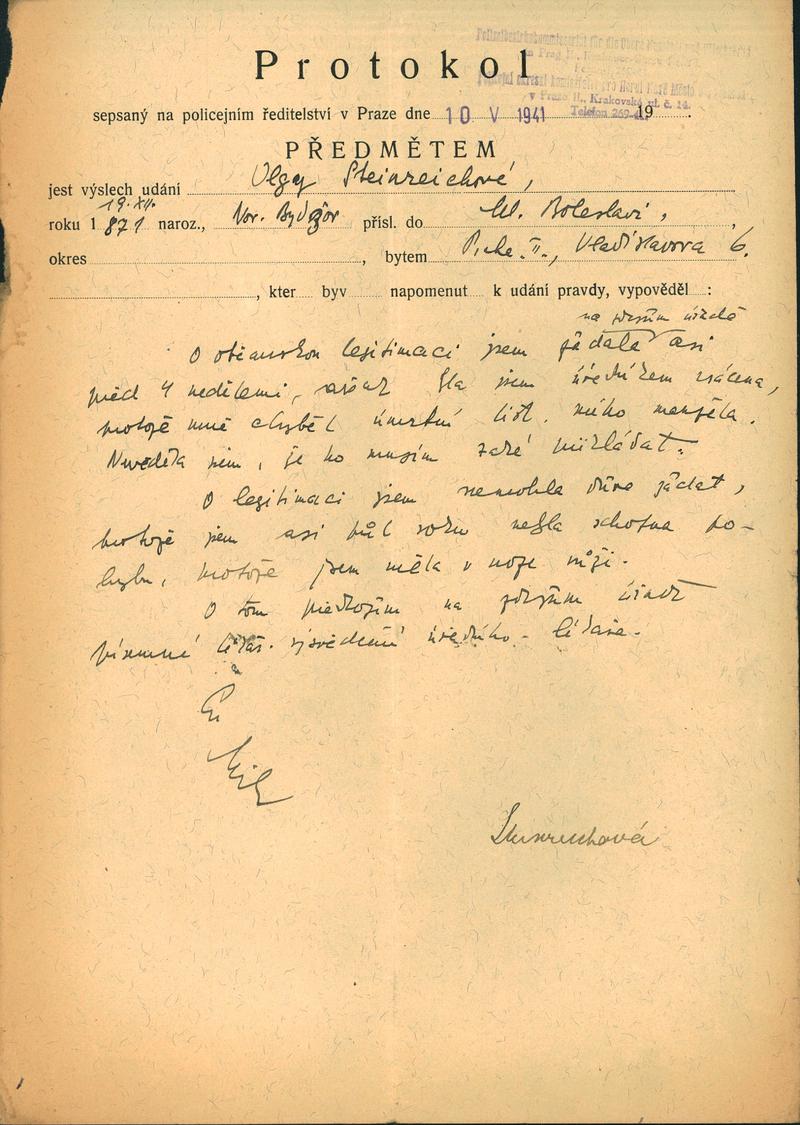 Protokol
sepsaný na policejním ředitelství v Praze dne 10 V 1941 19
v Praze II., Krakovská ul. č. 14.
Telefon 269-41.
PŘEDMĚTEM
jest výslech udání Olgy Steinreichové,
19.XII.
roku 1 871 naroz., Nov. Bydžov přísl. do Ml. Boleslavi,
okres , bytem Praha II., Vladislavova 6.
, kter byv napomenut k udání pravdy, vypověděl :
na zdejším úřadě
O občanskou legitimaci jsem žádala asi
před 4 nedělemi, avšak byla jsem úředníkem vrácena,
protože mně chyběl úmrtní list mého manžela.
Nevěděla jsem, že ho musím také předkládat.
O legitimaci jsem nemohla dříve žádat,
protože jsem asi půl roku nebyla schopna po-
hybu, protože jsem měla v noze růži.
O tom předložím na zdejším úřadě
písemné lékař. vysvědčení úředního lékaře.
Steinreichová